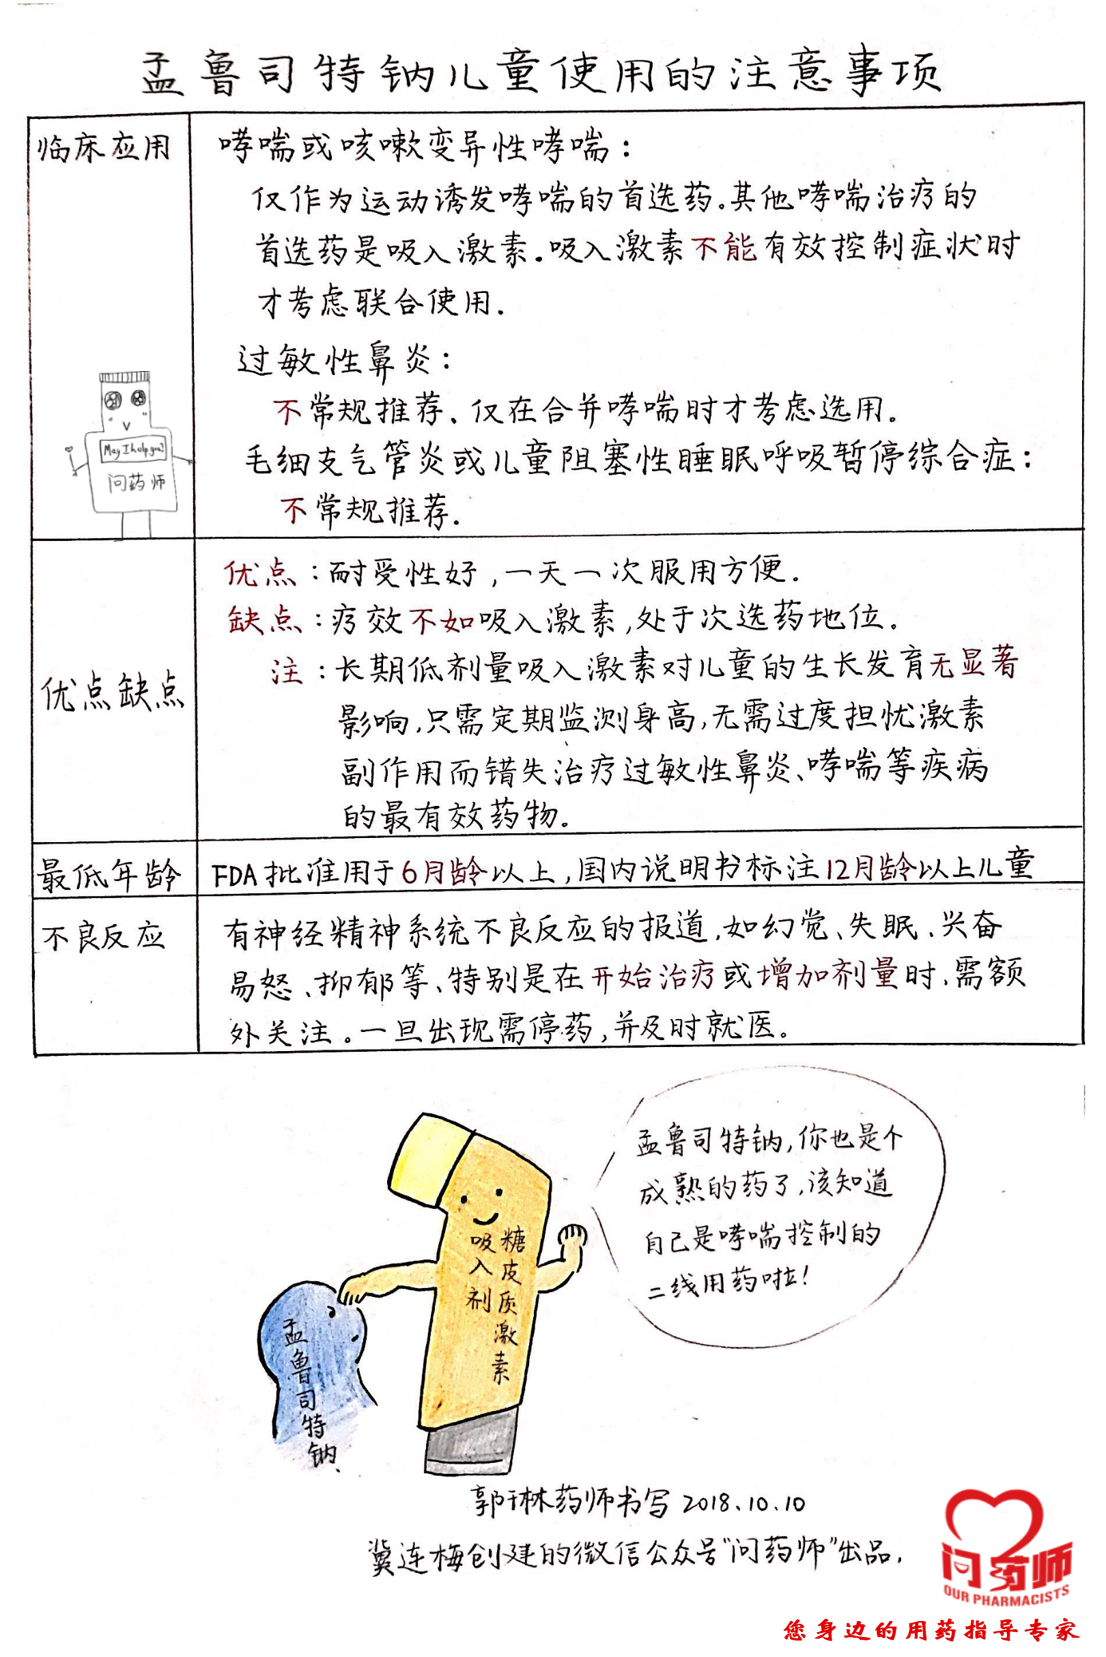 孟鲁司特钠儿童使用的注意事项
临床应用
哮喘或咳嗽变异性哮喘：
仅作为运动诱发哮喘的首选药。其他哮喘治疗的
首选药是吸入激素。吸入激素不能有效控制症状时
才考虑联合使用.
过敏性鼻炎：
不常规推荐、仅在合并哮喘时才考虑选用。
毛细支气管炎或儿童阻塞性睡眠呼吸暂停综合症：
不常规推荐.
May I help you?
问药师
优点缺点
优点：耐受性好，一天一次服用方便.
缺点：疗效不如吸入激素，处于次选药地位.
注：长期低剂量吸入激素对儿童的生长发育无显著
影响，只需定期监测身高，无需过度担忧激素
副作用而错失治疗过敏性鼻炎、哮喘等疾病
的最有效药物。
最低年龄
FDA批准用于6月龄以上，国内说明书标注12月龄以上儿童
不良反应
有神经精神系统不良反应的报道，如幻觉、失眠、兴奋
易怒、抑郁等、特别是在开始治疗或增加剂量时、需额
外关注。一旦出现需停药，并及时就医。
孟鲁司特钠，你也是个
成熟的药了，该知道
自己是哮喘控制的
二线用药啦！
糖皮质激素
吸入剂
孟鲁司特钠
郭琳药师书写 2018.10.10
冀连梅创建的微信公众号"问药师"出品.
问药师
OUR PHARMACISTS
您身边的用药指导专家